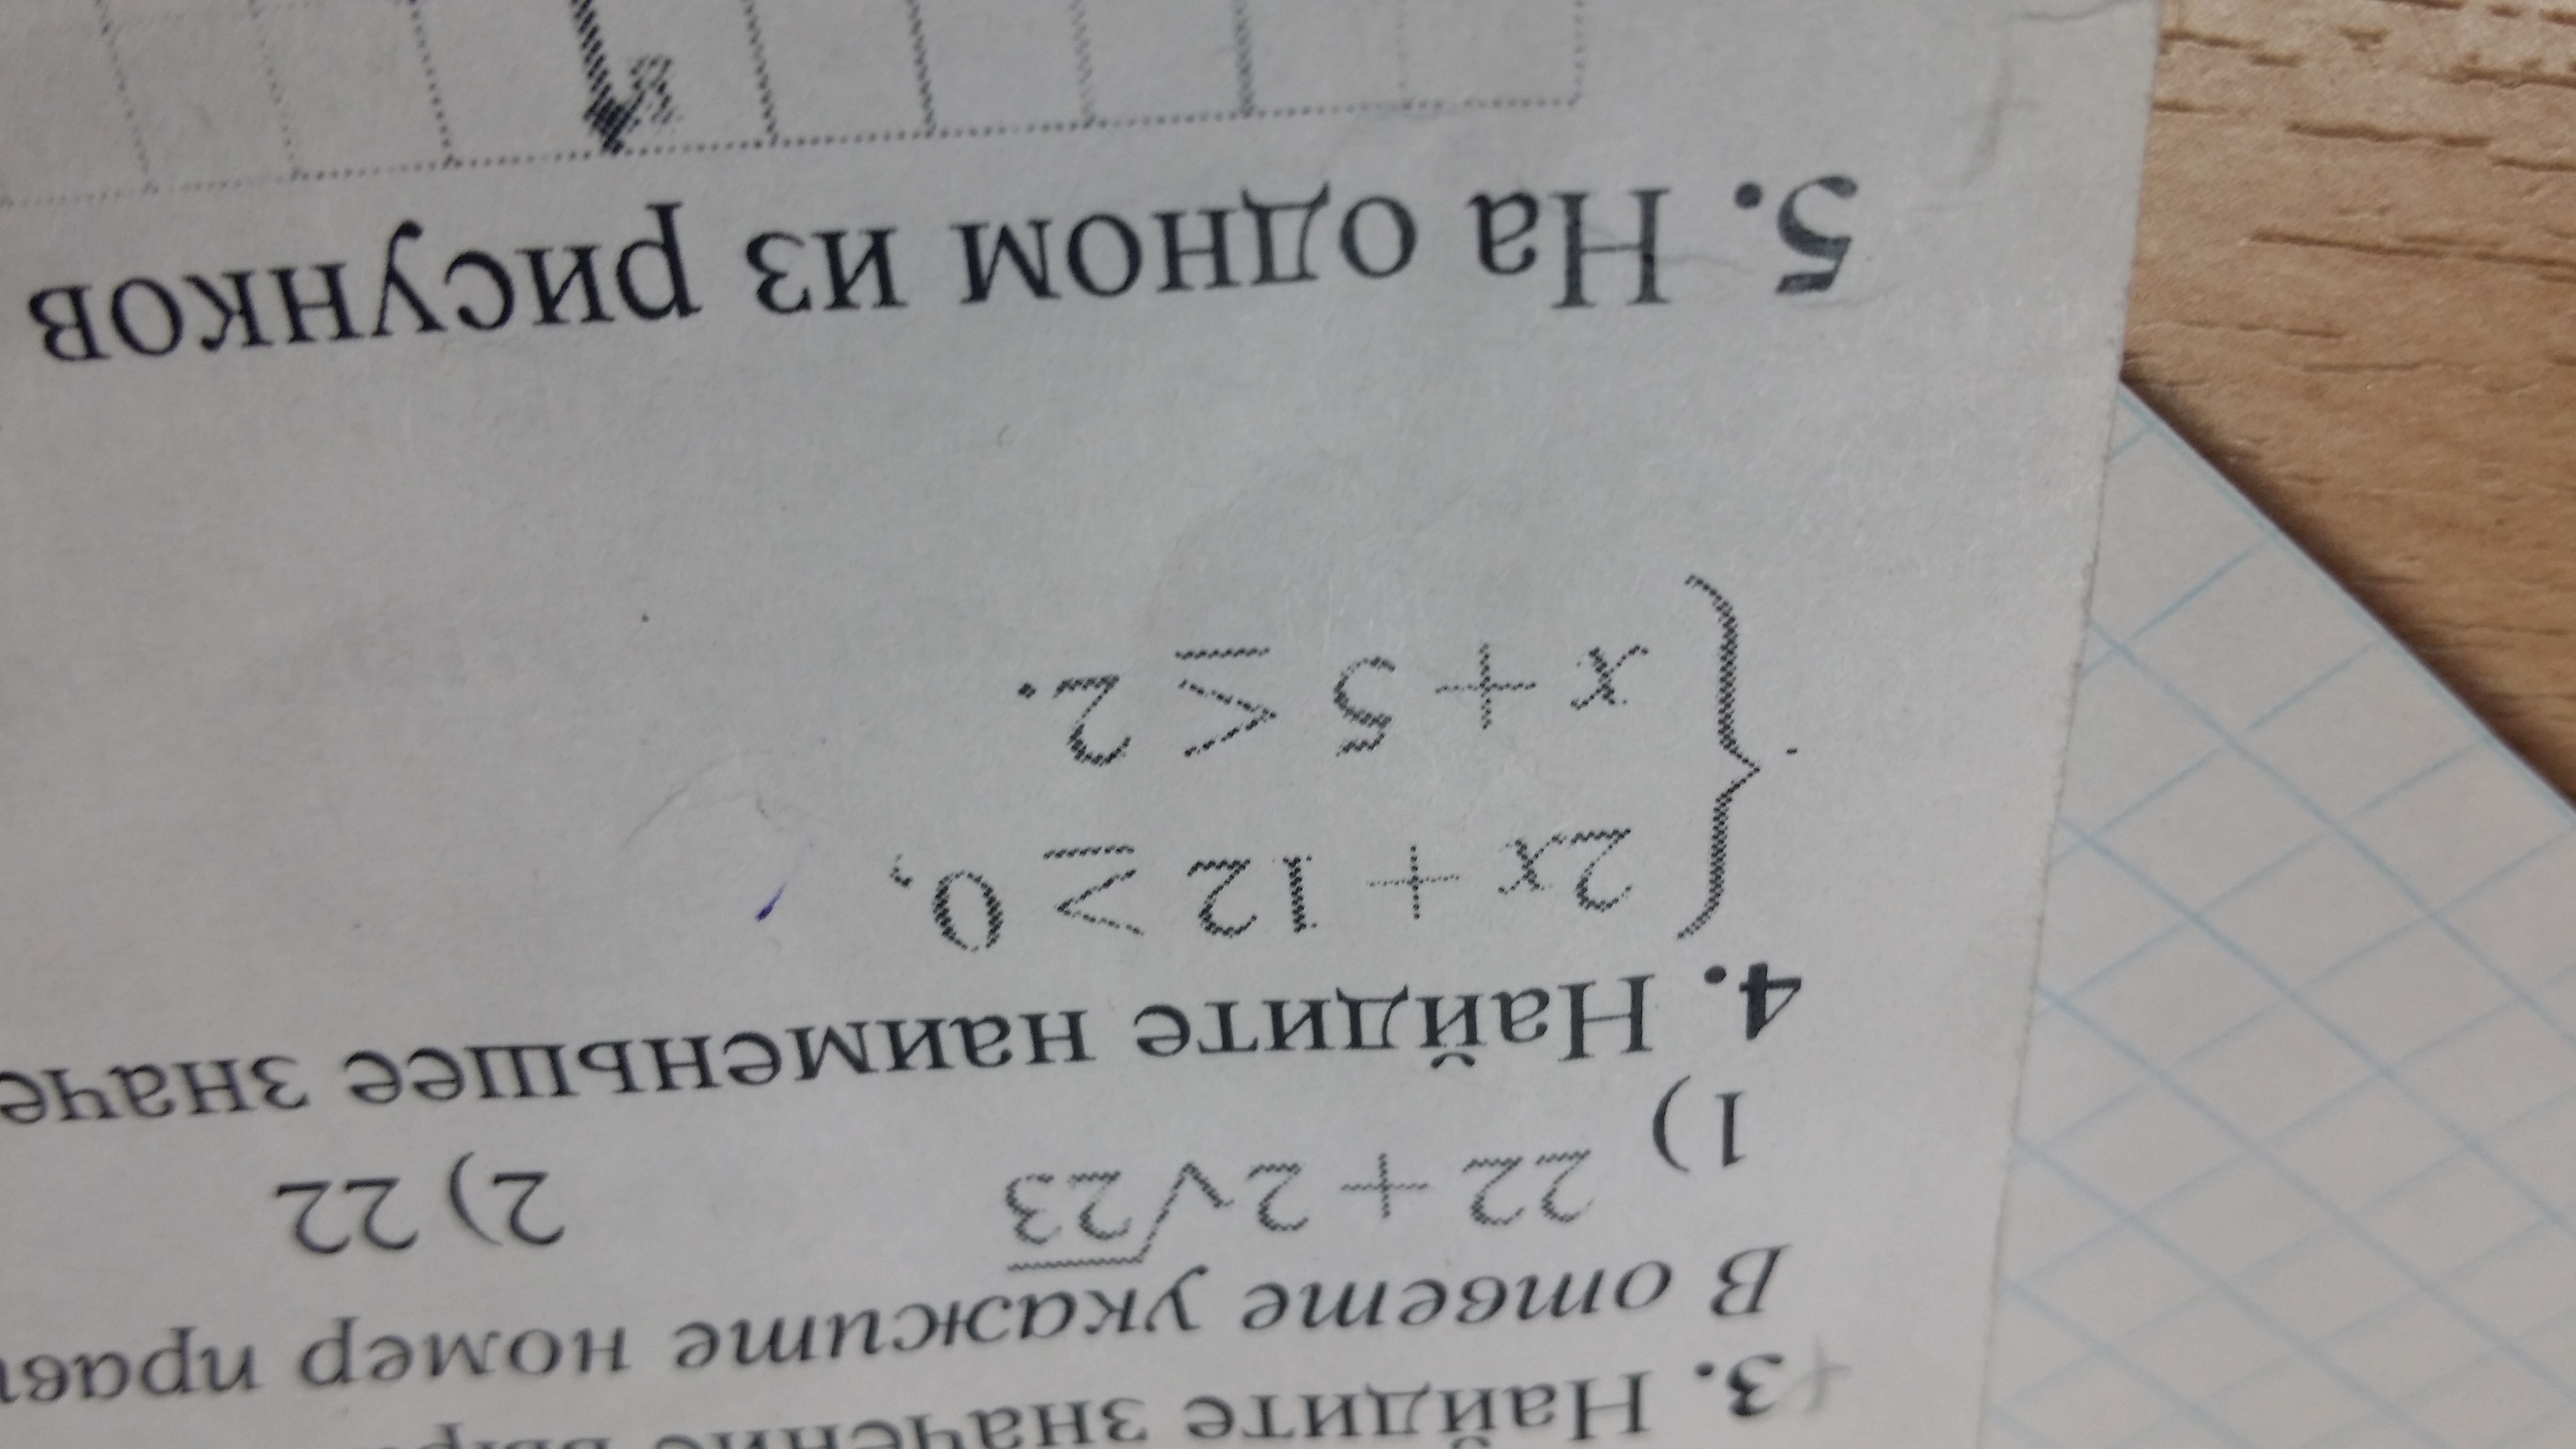 3. Найдите значение
В ответе укажите номер прав
1) 22 + 2√23 2) 22
4. Найдите наименьшее значе
2x + 12 ≥ 0,
x + 5 ≤ 2.
5. На одном из рисунков